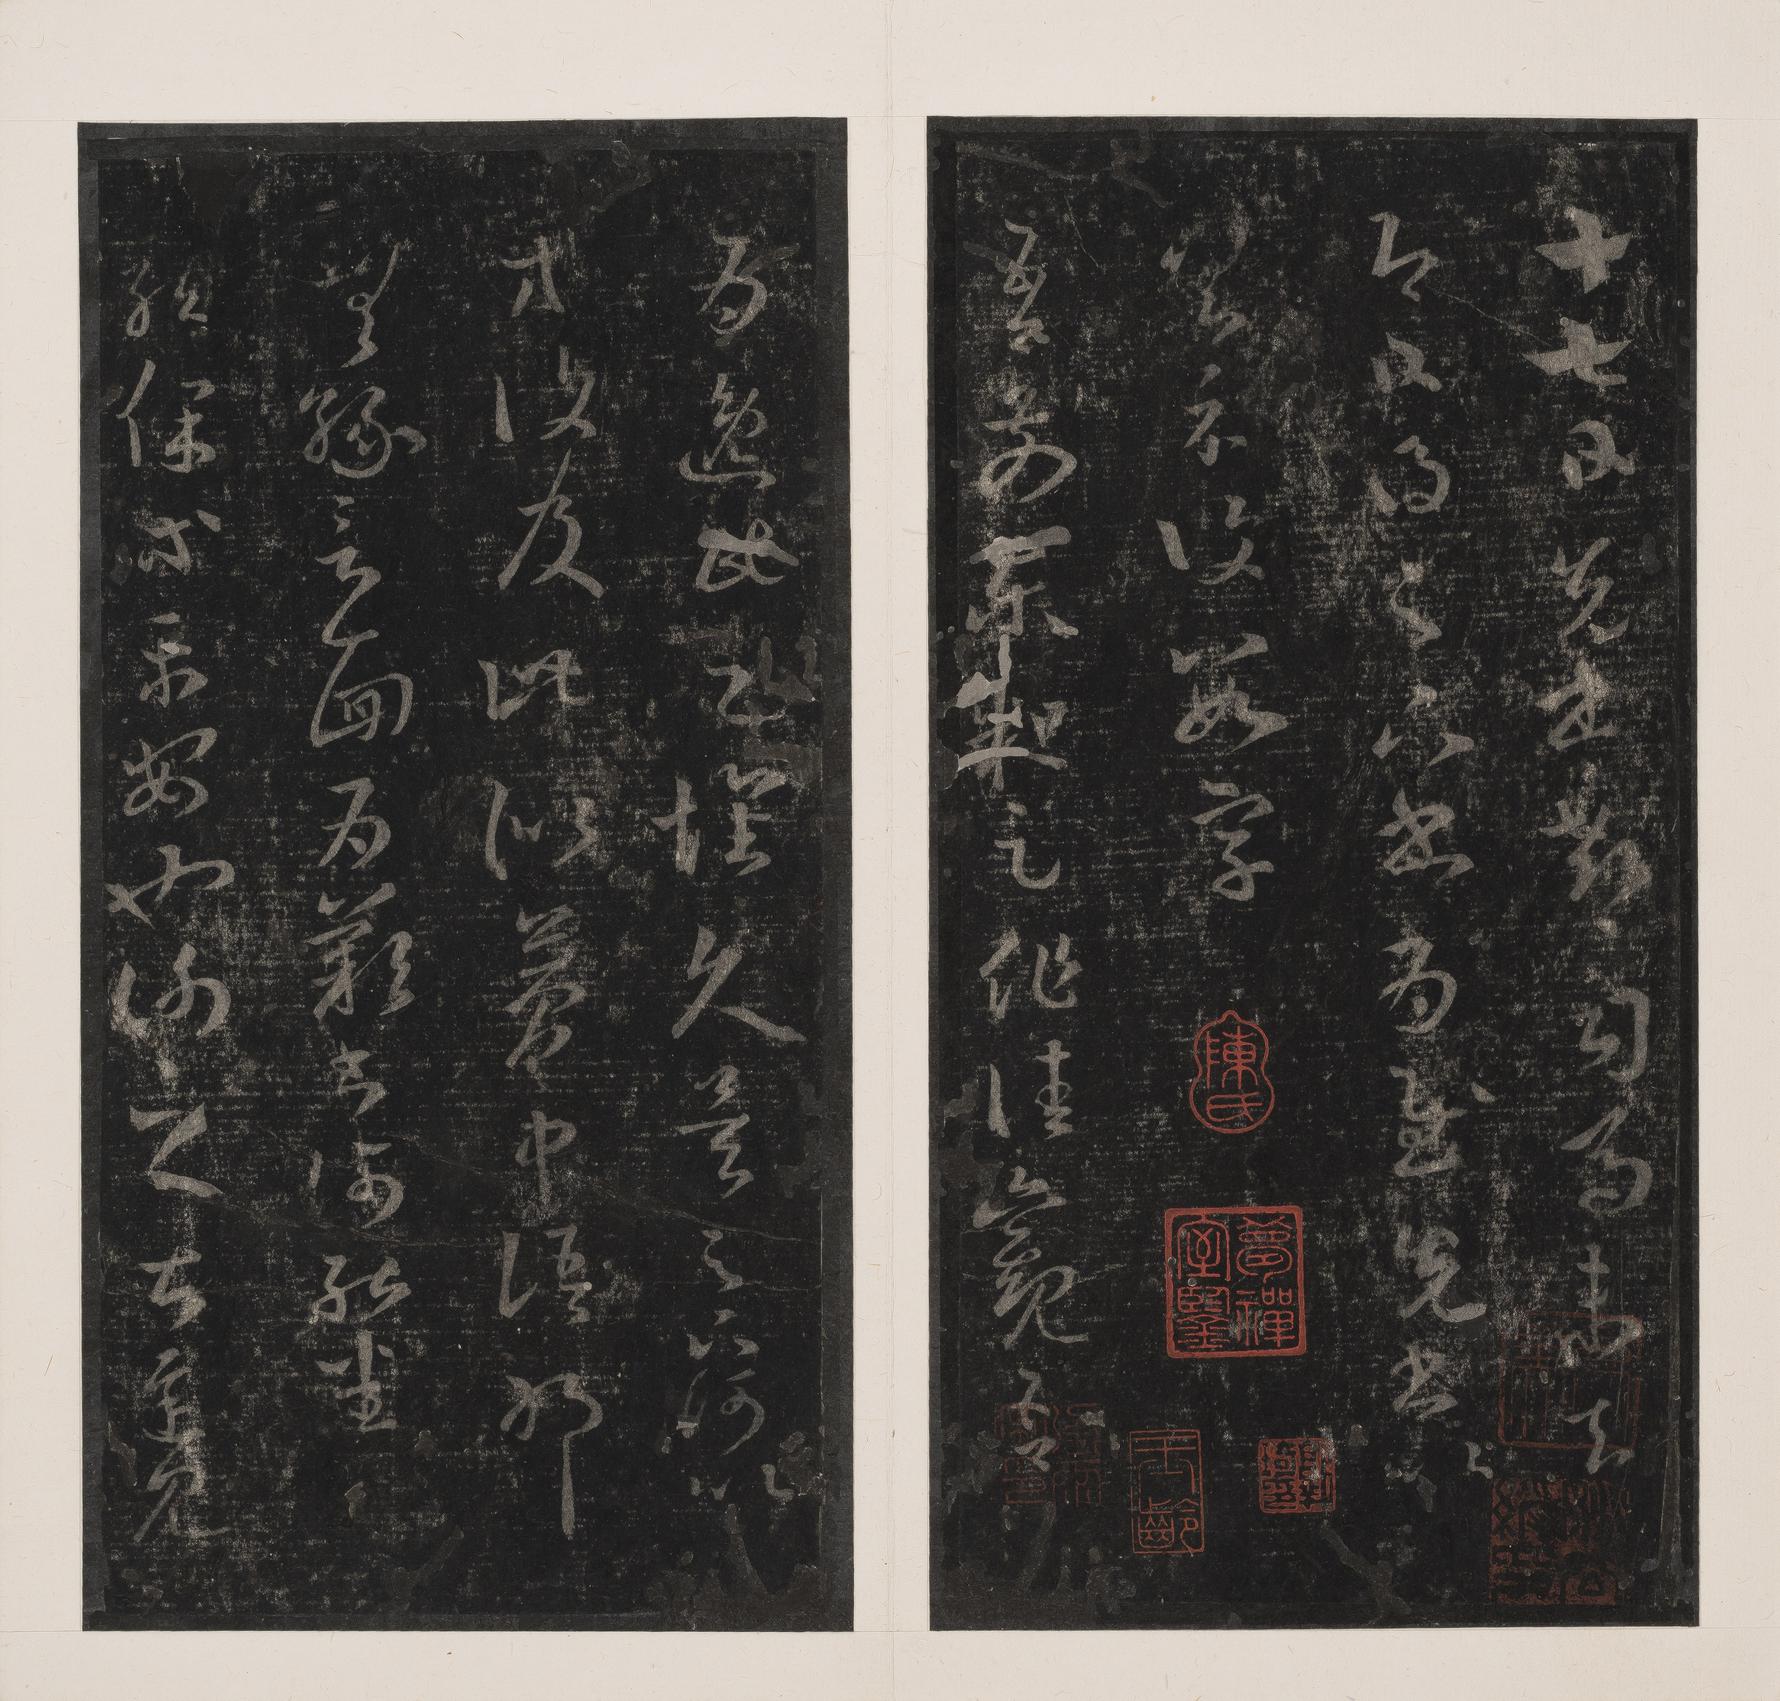 十七日先書郗司馬未去
即日得足下書為慰先書
以具示復數字
吾前東粗足作佳觀吾
為逸民之懷久矣足下何以
方復及此似夢中語耶
無緣言面為歎書何能悉
龍保等平安也謝之甚遲見
陳氏
夢禪室鑒